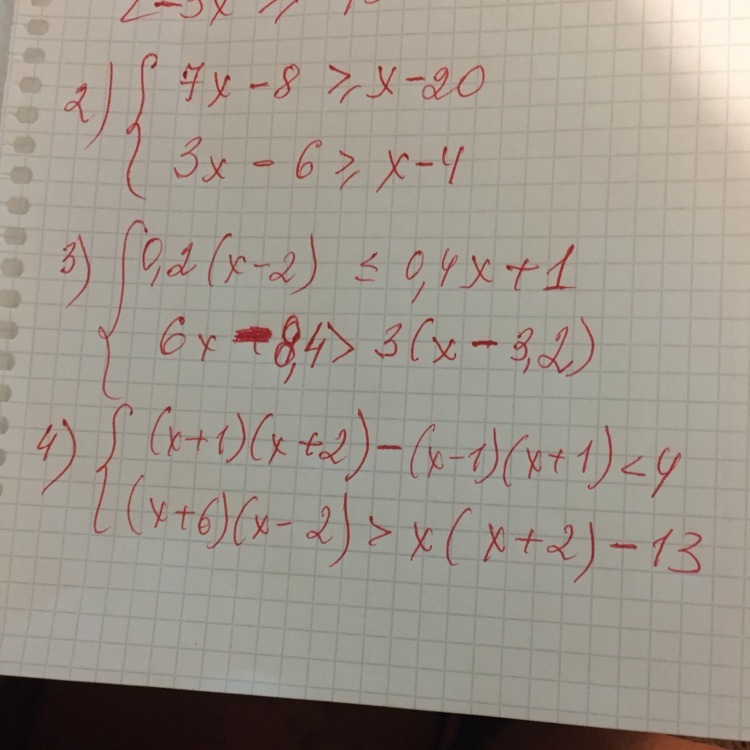 2) { 7x - 8 ⩾ x - 20
3x - 6 ⩾ x - 4
3) { 0,2(x-2) ≤ 0,4x + 1
6x - 8,4 > 3(x - 3,2)
4) { (x+1)(x+2) - (x-1)(x+1) < 4
(x+6)(x-2) > x(x+2) - 13